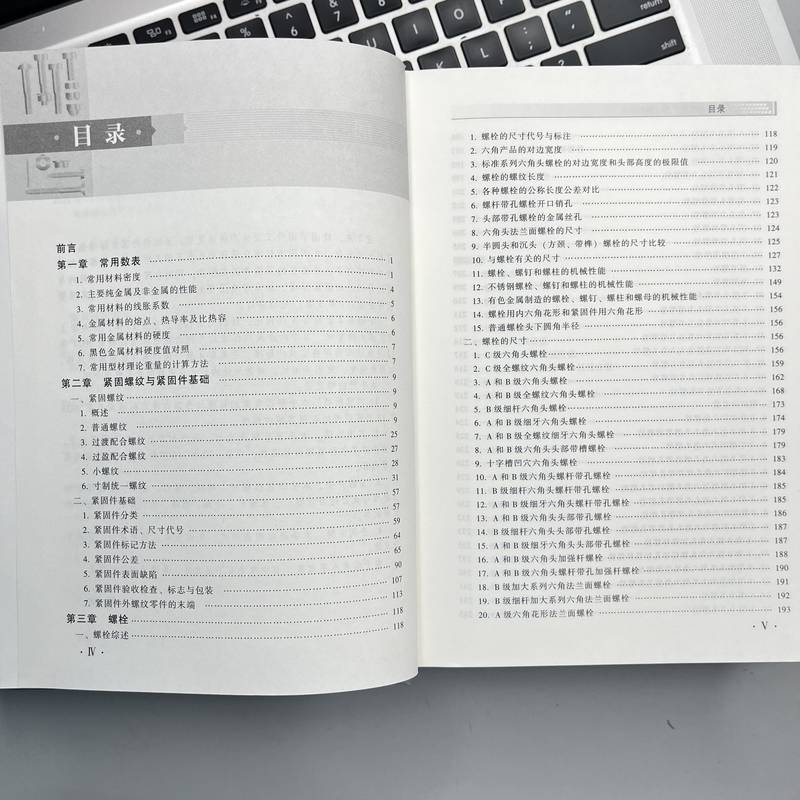 · 目录 ·
前言
第一章 常用数表 1
1. 常用材料密度 1
2. 主要纯金属及非金属的性能 4
3. 常用材料的线胀系数 5
4. 金属材料的熔点、热导率及比热容 6
5. 常用金属材料的硬度 6
6. 黑色金属材料硬度值对照 7
7. 常用型材理论重量的计算方法 7
第二章 紧固螺纹与紧固件基础 9
一、紧固螺纹 9
1. 概述 9
2. 普通螺纹 9
3. 过渡配合螺纹 25
4. 过盈配合螺纹 27
5. 小螺纹 28
6. 寸制统一螺纹 31
二、紧固件基础 57
1. 紧固件分类 57
2. 紧固件术语、尺寸代号 59
3. 紧固件标记方法 64
4. 紧固件公差 65
5. 紧固件表面缺陷 90
6. 紧固件验收检查、标志与包装 107
7. 紧固件外螺纹零件的末端 113
第三章 螺栓 118
一、螺栓综述 118
· Ⅳ ·
目录
1. 螺栓的尺寸代号与标注 118
2. 六角产品的对边宽度 119
3. 标准系列六角头螺栓的对边宽度和头部高度的极限值 120
4. 螺栓的螺纹长度 121
5. 各种螺栓的公称长度公差对比 122
6. 螺杆带孔螺栓开口销孔 123
7. 头部带孔螺栓的金属丝孔 123
8. 六角头法兰面螺栓的尺寸 124
9. 半圆头和沉头（方颈、带榫）螺栓的尺寸比较 125
10. 与螺栓有关的尺寸 127
11. 螺栓、螺钉和螺柱的机械性能 132
12. 不锈钢螺栓、螺钉和螺柱的机械性能 149
13. 有色金属制造的螺栓、螺钉、螺柱和螺母的机械性能 154
14. 螺栓用内六角花形和紧固件用六角花形 156
15. 普通螺栓头下圆角半径 156
二、螺栓的尺寸 156
1. C级六角头螺栓 156
2. C级全螺纹六角头螺栓 159
3. A和B级六角头螺栓 162
4. A和B级全螺纹六角头螺栓 168
5. B级细杆六角头螺栓 173
6. A和B级细牙六角头螺栓 174
7. A和B级全螺纹细牙六角头螺栓 179
8. A和B级六角头头部带槽螺栓 179
9. 十字槽凹穴六角头螺栓 183
10. A和B级六角头螺杆带孔螺栓 184
11. B级细杆六角头螺杆带孔螺栓 185
12. A和B级细牙六角头螺杆带孔螺栓 186
13. A和B级六角头头部带孔螺栓 187
14. B级细杆六角头头部带孔螺栓 187
15. A和B级细牙六角头头部带孔螺栓 187
16. A和B级六角头加强杆螺栓 188
17. A和B级六角头螺杆带孔加强杆螺栓 190
18. B级加大系列六角法兰面螺栓 191
19. B级细杆加大系列六角法兰面螺栓 192
20. A级六角花形法兰面螺栓 193
· Ⅴ ·
return
shift